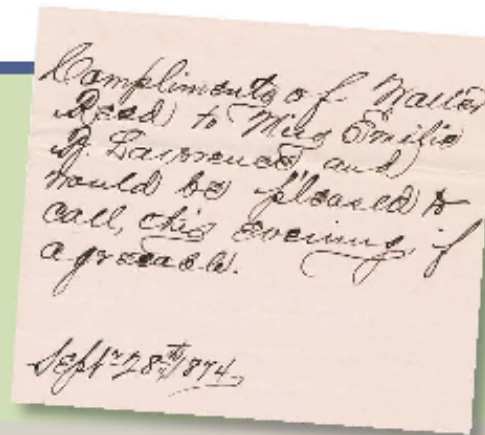 Compliments of Walter
Reed to Miss Emilie
B. Lawrence, and
would be pleased to
call, this evening, if
agreeable.
Sept. 28th, 1874